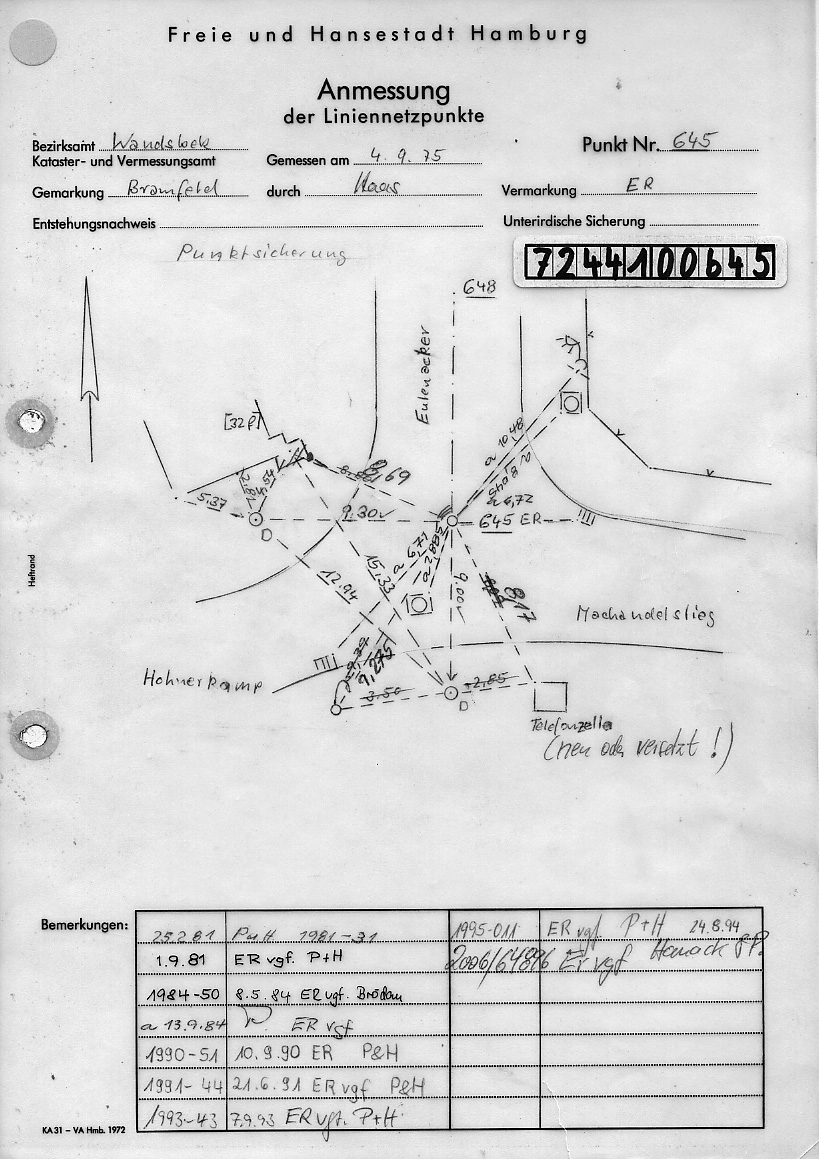 Freie und Hansestadt Hamburg
Anmessung
der Liniennetzpunkte
Bezirksamt Wandsbek
Kataster- und Vermessungsamt
Gemessen am 4.9.75
Punkt Nr. 645
Gemarkung Bramfeld
durch Haas
Vermarkung ER
Entstehungsnachweis
Unterirdische Sicherung
Punktsicherung
7244100645
648
Eulenacker
[32P]
a 10,48
8,69
5,37
9.30
645 ER
a 6,72
a 6,71
15,33
12.94
9.00
8,17
Machandelstieg
Hohnerkamp
9,275
3.50
2.85
D
D
Telefonzelle
(neu oder versetzt!)
Heftrand
Bemerkungen:
25.2.81 PuH 1981-31
1995-011 ER vgf. P+H 24.8.94
1.9.81 ER vgf. P+H
2006/64896 ER vgf
1984-50 8.5.84 ER vgf. Brodau
a 13.9.84 ER vgf
1990-51 10.9.90 ER P&H
1991-44 21.6.91 ER vgf P&H
1993-43 7.9.93 ER vgf. P+H
KA 31 – VA Hmb. 1972